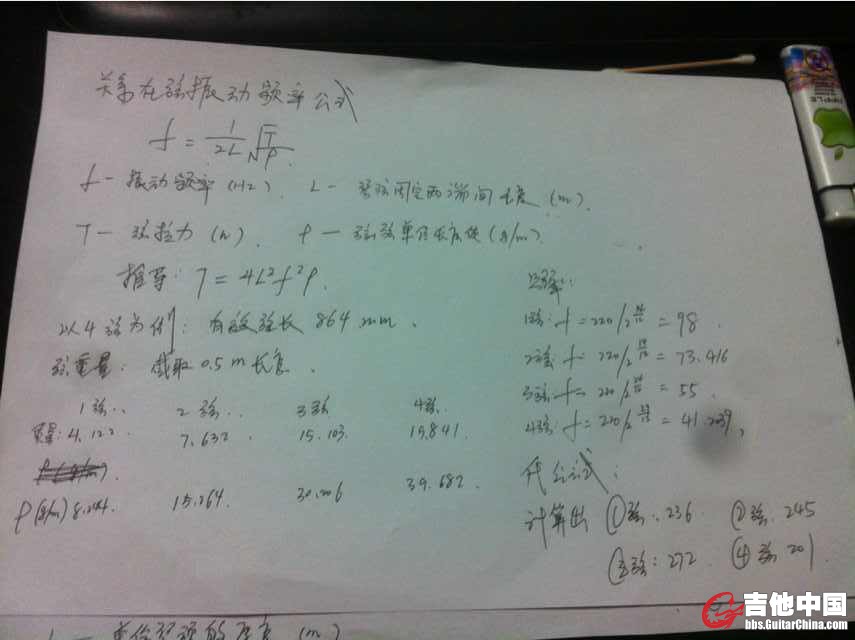 关系在弦振动频率公式
f = 1/2L √T/ρ
f — 振动频率 (Hz). L — 琴弦固定两端间长度 (m).
T — 弦拉力 (N). ρ — 弦单位长度 (g/m).
推导: T = 4L²f²ρ.
以4弦为例: 有效弦长 864 mm.
弦重量: 截取 0.5 m 长度.
1弦.. 2弦.. 3弦 4弦.
重量: 4.122 7.632 15.103 19.841
ρ (g/m) 8.244. 15.264. 30.206 39.682
频率:
1弦: f = 220/2 = 98.
2弦: f = 220/2 = 73.416
3弦: f = 220/2 = 55
4弦: f = 220/2 = 41.203
代公式:
计算出 ①弦: 236 ②弦. 245
③弦: 272 ④弦 201
(m)
吉他中国
bbs.GuitarChina.com